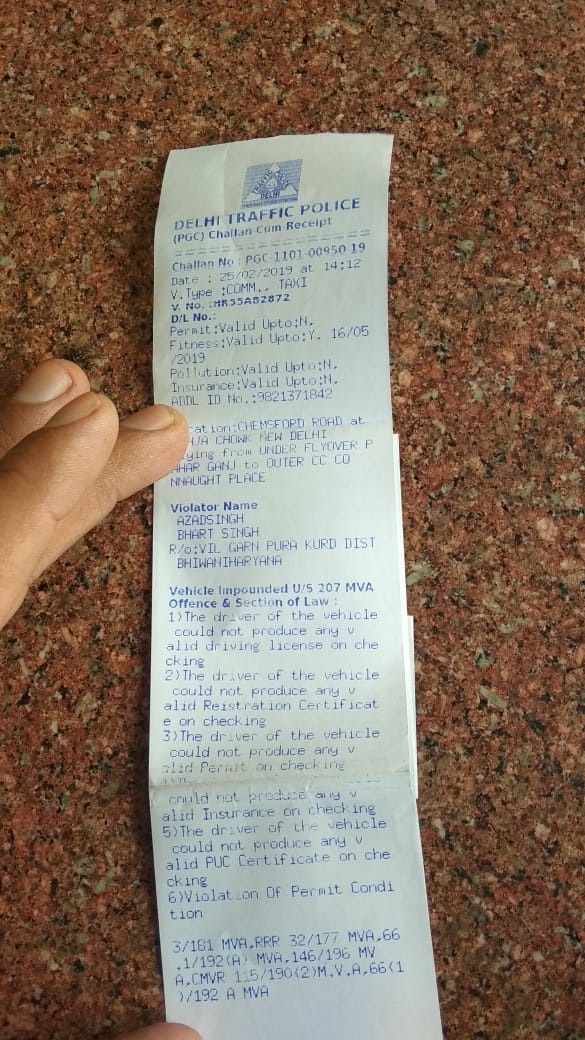 TRAFFIC POLICE
DELHI
DELHI TRAFFIC POLICE
(PGC) Challan-Cum-Receipt
Challan No : PGC-1101-00950 19
Date : 25/02/2019 at 14:12
V.Type :COMM., TAXI
V. No. :HR55AB2872
D/L No.:
Permit:Valid Upto:N,
Fitness:Valid Upto:Y, 16/05
/2019
Pollution:Valid Upto:N,
Insurance:Valid Upto:N,
ADDL ID No.:9821371842
cation:CHEMSFORD ROAD at
NJA CHOWK NEW DELHI
lying from UNDER FLYOVER P
AHAR GANJ to OUTER CC CO
NNAUGHT PLACE
Violator Name
AZADSINGH
BHART SINGH
R/o:VIL GARN PURA KURD DIST
BHIWANIHARYANA
Vehicle Impounded U/S 207 MVA
Offence & Section of Law :
1)The driver of the vehicle
could not produce any v
alid driving license on che
cking
2)The driver of the vehicle
could not produce any v
alid Reistration Certificat
e on checking
3)The driver of the vehicle
could not produce any v
alid Permit on checking
could not produce any v
alid Insurance on checking
5)The driver of the vehicle
could not produce any v
alid PUC Certificate on che
cking
6)Violation Of Permit Condi
tion
3/181 MVA,RRR 32/177 MVA,66
.1/192(A) MVA,146/196 MV
A,CMVR 115/190(2)M.V.A,66(1
)/192 A MVA